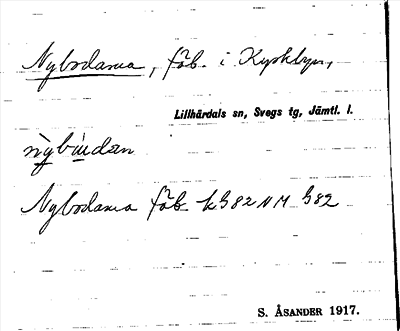 Nybodarna, fäb. i Kyrkbyn,
Lillhärdals sn, Svegs tg, Jämtl. l.
Nybodarna fäb kG82NM G82
S. ÅSANDER 1917.